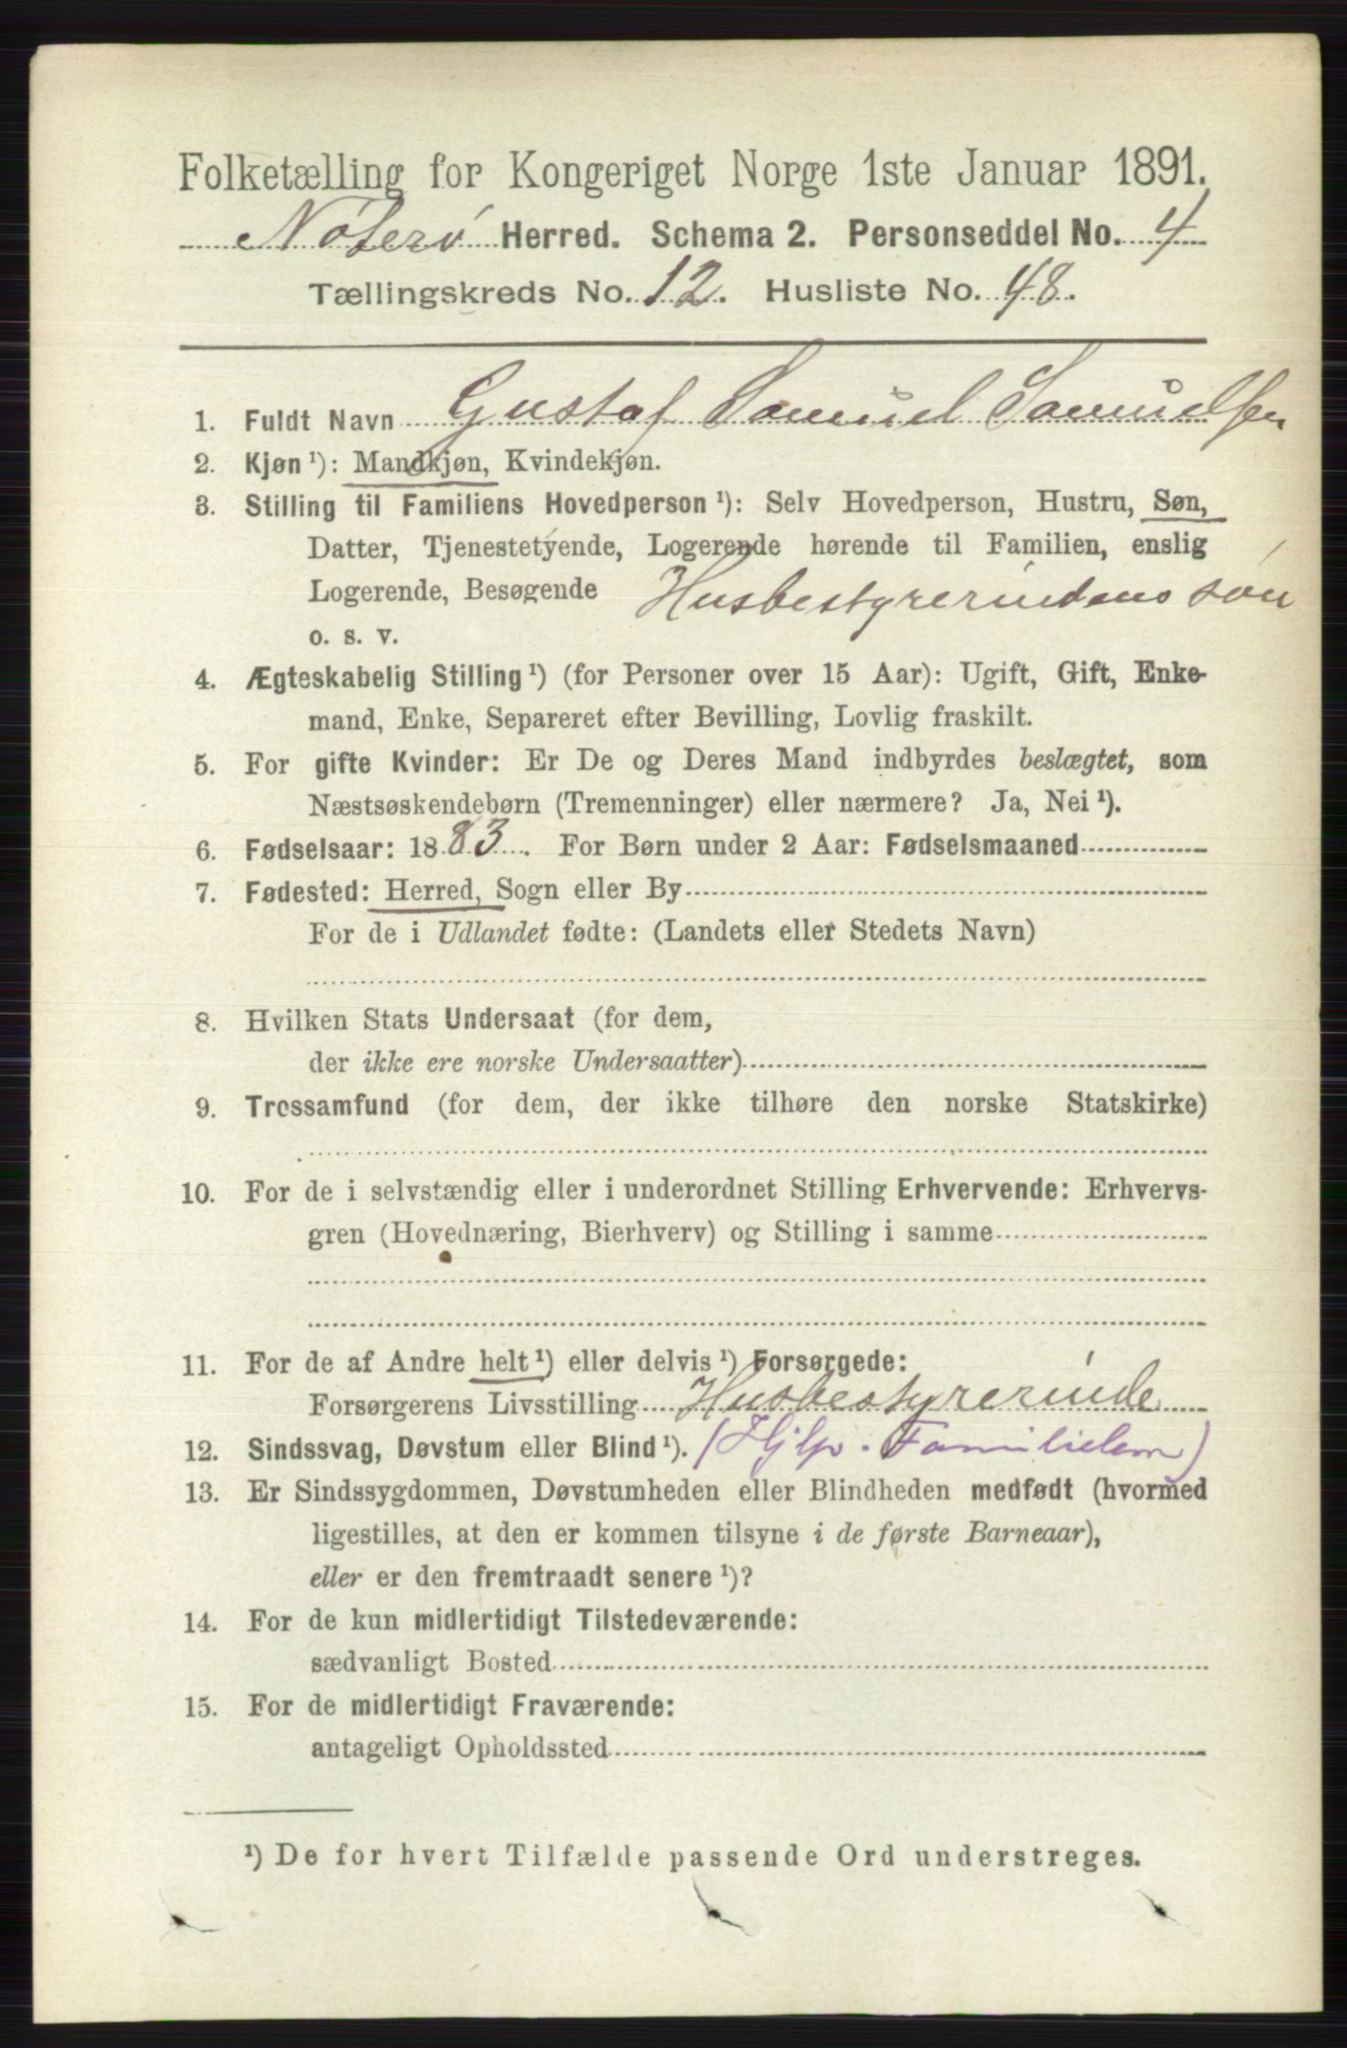 Folketælling for Kongeriget Norge 1ste Januar 1891.
Nøterø Herred. Schema 2. Personseddel No. 4
Tællingskreds No. 12. Husliste No. 48.
1. Fuldt Navn Gustaf Samuel Samuelsen
2. Kjøn¹): Mandkjøn, Kvindekjøn.
3. Stilling til Familiens Hovedperson¹): Selv Hovedperson, Hustru, Søn,
Datter, Tjenestetyende, Logerende hørende til Familien, enslig
Logerende, Besøgende Husbestyrerindens søn
o. s. v.
4. Ægteskabelig Stilling¹) (for Personer over 15 Aar): Ugift, Gift, Enke-
mand, Enke, Separeret efter Bevilling, Lovlig fraskilt.
5. For gifte Kvinder: Er De og Deres Mand indbyrdes beslægtet, som
Næstsøskendebørn (Tremenninger) eller nærmere? Ja, Nei¹).
6. Fødselsaar: 1883. For Børn under 2 Aar: Fødselsmaaned
7. Fødested: Herred, Sogn eller By
For de i Udlandet fødte: (Landets eller Stedets Navn)
8. Hvilken Stats Undersaat (for dem,
der ikke ere norske Undersaatter)
9. Trossamfund (for dem, der ikke tilhøre den norske Statskirke)
10. For de i selvstændig eller i underordnet Stilling Erhvervende: Erhvervs-
gren (Hovednæring, Bierhverv) og Stilling i samme
11. For de af Andre helt¹) eller delvis¹) Forsørgede:
Forsørgerens Livsstilling Husbestyrerinde
12. Sindssvag, Døvstum eller Blind¹). (Hjlp. Familielem)
13. Er Sindssygdommen, Døvstumheden eller Blindheden medfødt (hvormed
ligestilles, at den er kommen tilsyne i de første Barneaar),
eller er den fremtraadt senere¹)?
14. For de kun midlertidigt Tilstedeværende:
sædvanligt Bosted
15. For de midlertidigt Fraværende:
antageligt Opholdssted
¹) De for hvert Tilfælde passende Ord understreges.